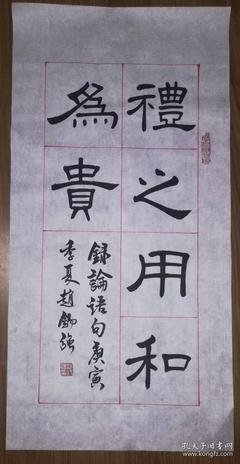 禮之用和
為貴
錄論語句庚寅
季夏趙錫強
孔夫子旧书网
www.kongfz.com